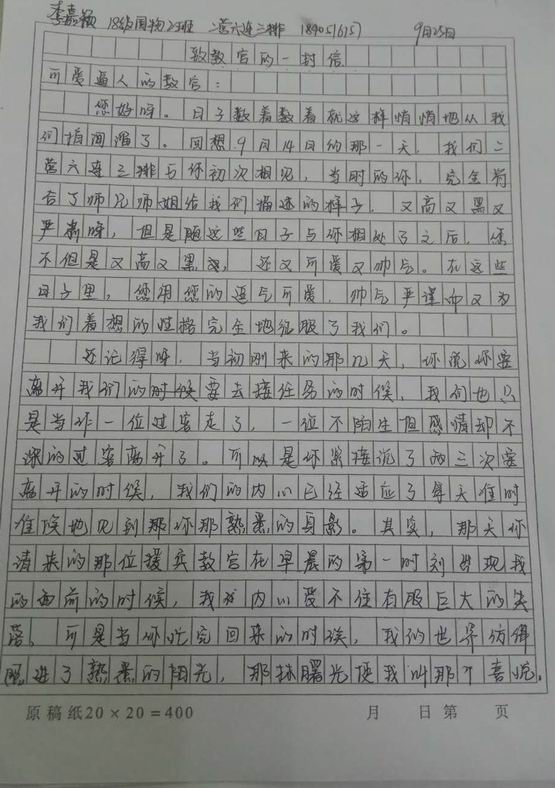 李嘉颖 18级国物2班 二营六连三排 9月25日
致教官的一封信
可爱逼人的教官:
您好呀。日子数着数着就这样悄悄地从我
们指间溜了。回想9月14日的那一天,我们二
营六连三排与你初次相见,当时的你,完全符
合了师兄师姐给我们描述的样子,又高又黑又
严肃呀,但是随这些日子与你相处了之后,你
不但是又高又黑,还又可爱又帅气。在这些
日子里,您用您的语气可爱,帅气严谨而又为
我们着想的性格完全地征服了我们。
还记得呀,当初刚来的那几天,你说你要
离开我们的时候要去接任务的时候,我们也只
是当作一位过客走了,一位不陌生但感情却不
深的过客离开了。可以是你累接说了两三次要
离开的时候,我们的内心已经适应了每天准时
准候地见到那你那熟悉的身影。其实,那天你
请来的那位援兵教官在早晨的第一时刻出现我
的面前的时候,我的内心受不住有股巨大的失
落,可是当你忙完回来的时候,我的世界仿佛
照进了熟悉的阳光,那抹曙光使我叫那个喜悦。
原稿纸20×20=400 月 日第 页